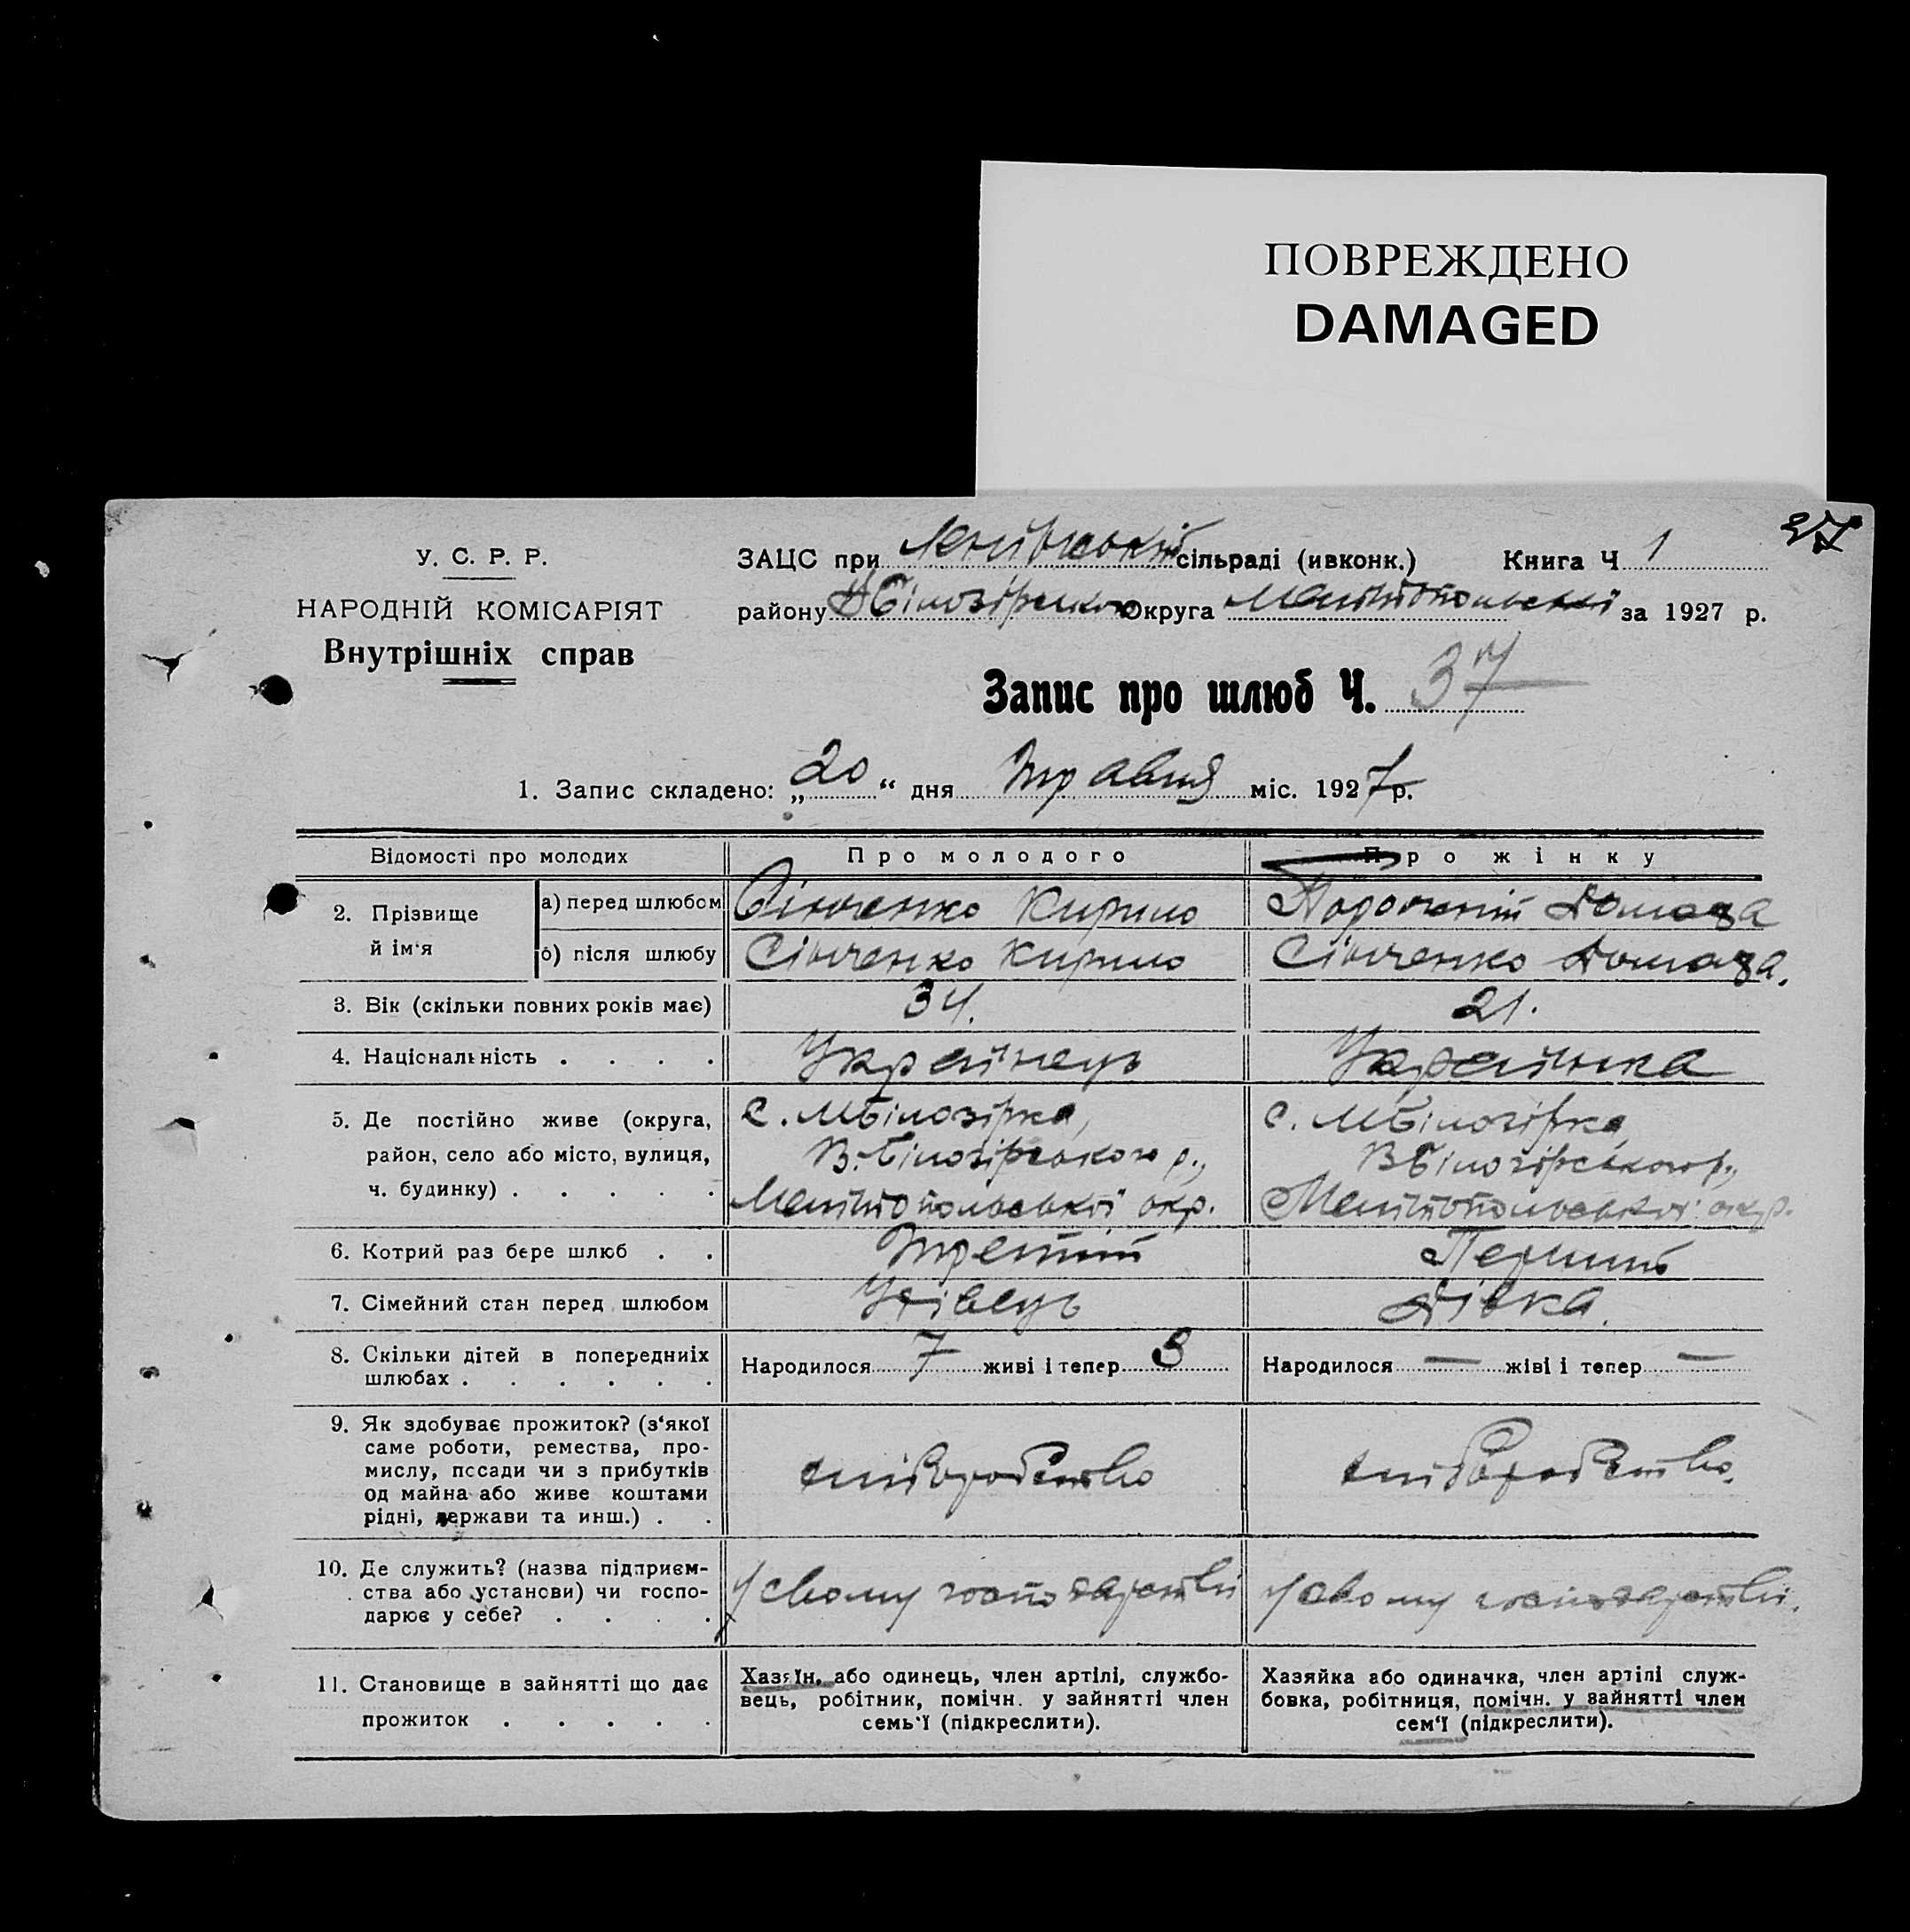 ПОВРЕЖДЕНО
DAMAGED
27
У. С. Р. Р.
НАРОДНІЙ КОМІСАРІЯТ
Внутрішніх справ
ЗАЦС при сільраді (ивконк.) Книга Ч 1
району Білозірського Округа Мелітопольської за 1927 р.
Запис про шлюб Ч. 37
1. Запис складено: „20“ дня Травня міс. 1927 р.
Відомості про молодих Про молодого Про жінку
2. Прізвище й ім‘я
а) перед шлюбом Сінченко Кирило Домаха
б) після шлюбу Сінченко Кирило Сінченко Домаха.
3. Вік (скільки повних років має) 34. 21.
4. Національність . . . . Українець Українка
5. Де постійно живе (округа,
район, село або місто, вулиця,
ч. будинку) . . . . .
с. МБілозірка,
В.-Білозірського р.,
Мелітопольської окр.
с. МБілозірка,
ВБілозірського р.,
Мелітопольської окр.
6. Котрий раз бере шлюб . . Третій Перший
7. Сімейний стан перед шлюбом Удівець Дівка.
8. Скільки дітей в попередниіх
шлюбах . . . . . .
Народилося 7 живі і тепер 3
Народилося — жіві і тепер —
9. Як здобуває прожиток? (з‘якої
саме роботи, ремества, про-
мислу, посади чи з прибутків
од майна або живе коштами
рідні, держави та инш.) . .
хліборобство
хліборобство.
10. Де служить? (назва підприєм-
ства або установи) чи госпо-
дарює у себе? . . . .
У свому господарстві
У свому господарстві.
11. Становище в зайнятті що дає
прожиток . . . . .
Хазяїн, або одинець, член артілі, службо-
вець, робітник, помічн. у зайнятті член
семь‘ї (підкреслити).
Хазяйка або одиначка, член артілі служ-
бовка, робітниця, помічн. у зайнятті член
сем‘ї (підкреслити).